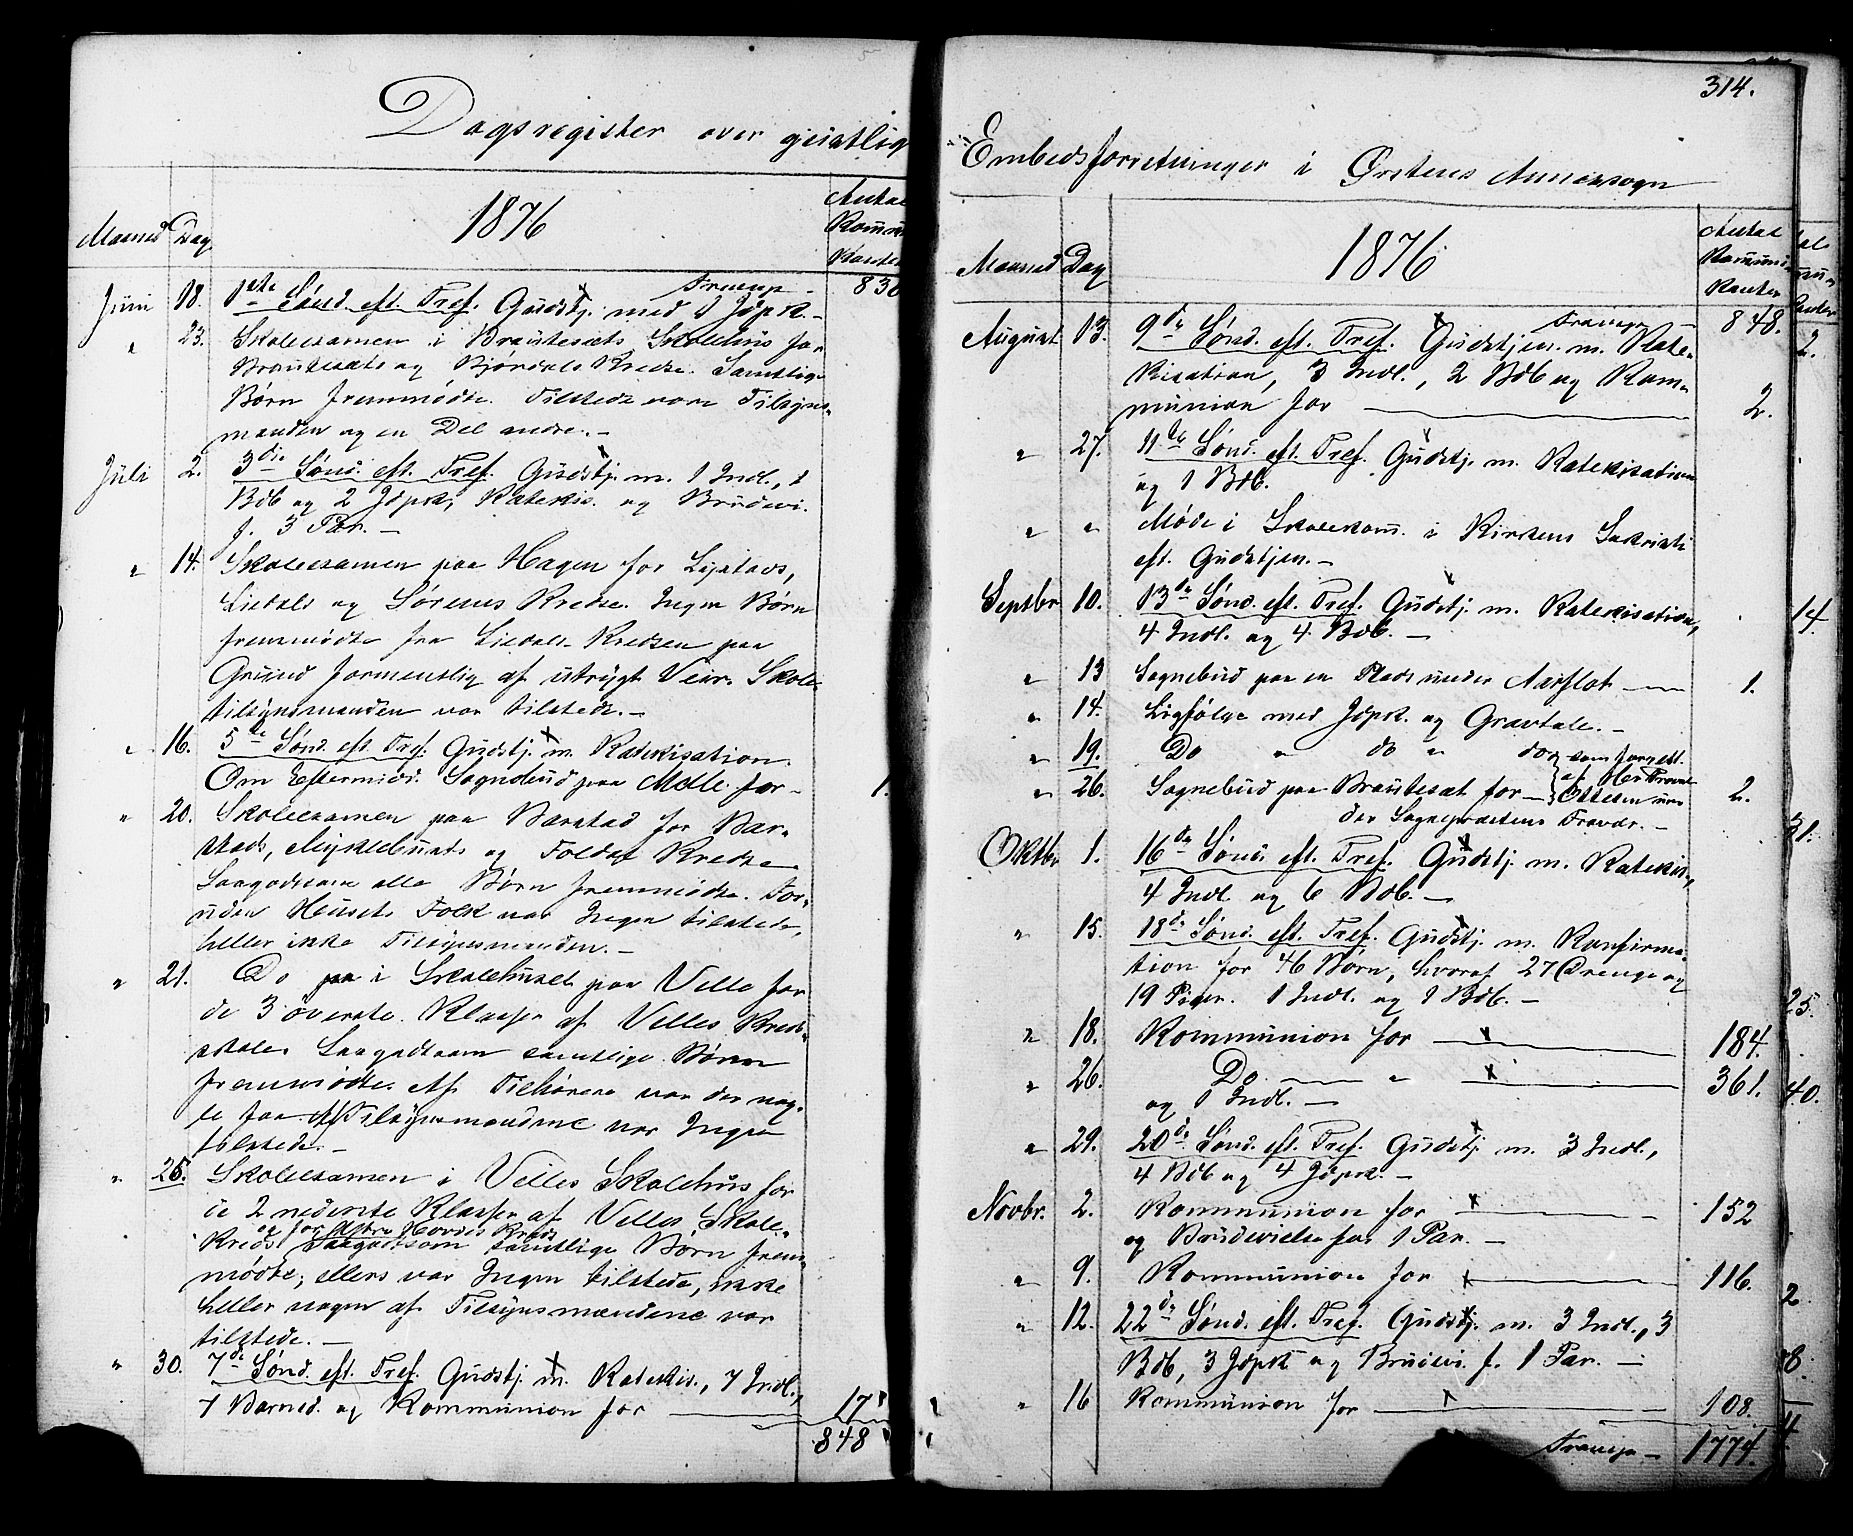 Dagsregister over geistlig
1876
Maaned Dag
Antal
Kommuni
kanter
Transp. -
Juni 18. 1ste Sønd. eft. Tref. Gudstj. med 1 Jdpk. - 830
" 23. Skoleexamen i Brautesæts Skolehus for
Brautesæts og Bjørdals Kredse. Samtlige
Børn fremmødte. Tilstede vare Tilsyns-
manden og en Del andre. -
Juli 2. 3die Sønd. eft. Tref. Gudstj. m. 1 Indl., 1
Bdb og 2 Jdpk, Katekis. og Brudevi.
f. 3 Par. -
" 14. Skoleexamen paa Hagen for
Liadals og Sørenes Kredse. Ingen Børn
fremmødte fra Liadals Kredsen paa
Grund formentlig af utrygt Veir. Skole-
tilsynsmanden var tilstede. -
" 16. 5te Sønd. eft. Tref. Gudstj. m. Katekisation.
Om Eftermidd. Sognebud paa Melle for - 1.
" 20. Skoleexamen paa Barstad for Bar-
stads, Mykleb­usts og Foldal Kredse
Saagodtsom alle Børn fremmødte. For-
uden Husets Folk var Ingen tilstede,
heller ikke Tilsynsmanden. -
" 21. Do i Skolehuset paa Velle for
de 3 øverste Klasser af Velles Kreds-
skole. Saagodtsom samtlige Børn
fremmødte. Af Tilhørere var der nog-
le faa Af Tilsynsmændene var Ingen
tilstede. -
" 25. Skoleexamen i Velles Skolehus for
de 2 nederste Klasser af Velles Skole-
og for Hovdes Kreds
kreds. Saagodtsom samtlige Børn frem-
mødte, ellers var Ingen tilstede, ikke
heller nogen af Tilsynsmændene var
tilstede. -
" 30. 7de Sønd. eft. Tref. Gudstj. m. Katekis., 7 Indl.,
7 Barned. og Kommunion for 17
848
314.
Embedsforretninger i Ørstens Annexsogn
1876
Maaned Dag
Antal
Kommuni
kanter
Transp. -
August 13. 9de Sønd. eft. Tref. Gudstjen. m. Kate- 848.
kisation, 3 Indl., 2 Bdb og Kom-
munion for 2.
" 27. 11te Sønd. eft. Tref. Gudstj. m. Katekisation
og 1 Bdb.
" " Møde i Skolekom. i Kirkens Sakristi
eft. Gudstjen. -
Septbr 10. 13de Sønd. eft. Tref. Gudstj. m. Katekisation,
4 Indl. og 4 Bdb. -
" 13 Sognebud paa en Plads under Aarflot 1.
" 14. Ligfølge med Jdpk. og Gravtale. -
" 19. Do " do " do som forrett.
af Her Provst
" 26. Sognebud paa Brautesæt for - Ottesen un- 2.
der Sognepræstens Fravær. -
Oktbr 1. 16de Sønd. eft. Tref. Gudstj. m. Katekis.,
4 Indl. og 6 Bdb. -
" 15. 18de Sønd. eft. Tref. Gudstj. m. Konfirma-
tion for 46 Børn, hvoraf 27 Drenge og
19 Piger. 1 Indl. og 1 Bdb. -
" 18. Kommunion for 184.
" 26. Do " 361.
og 1 Indl. -
" 29. 20de Sønd. eft. Tref. Gudstj. m. 3 Indl.,
4 Bdb og 4 Jdpk. -
Novbr. 2. Kommunion for 152
og Brudevielse for 1 Par. -
" 9. Kommunion for 116.
" 12. 22de Sønd. eft. Tref. Gudstj. m. 3 Indl., 3
Bdb, 3 Jdpk og Brudevi. f. 1 Par. -
" 16 Kommunion for 108.
Transp - 1774.
2.
14.
31.
25.
40.
2
8.
4.